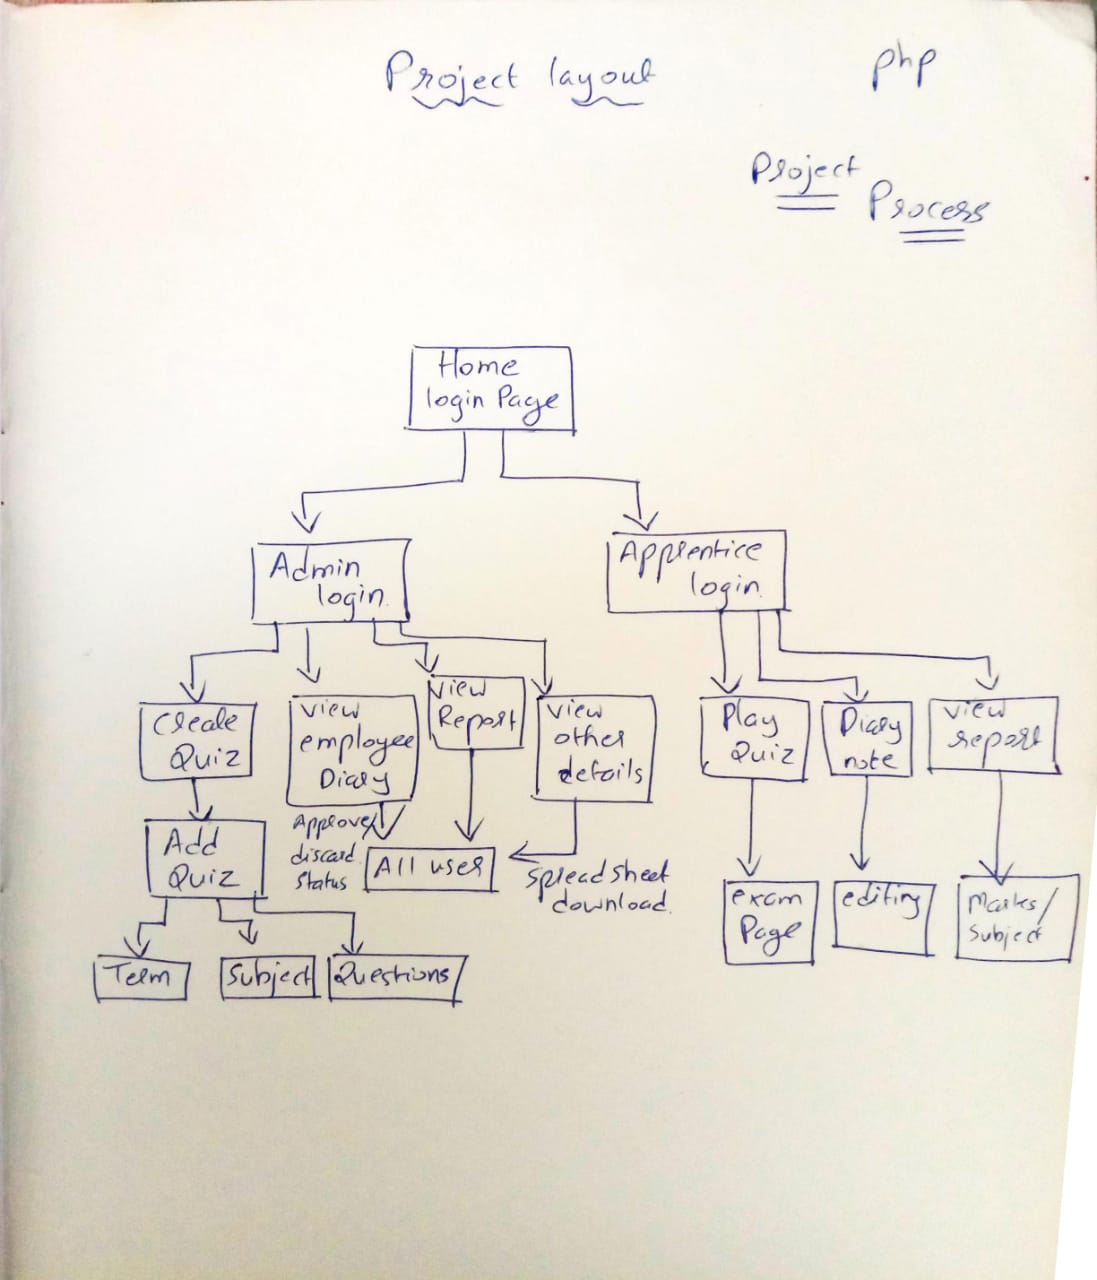 Project layout
php
Project
Process
Home
login Page
Admin
login.
Apprentice
login.
Create
Quiz
View
employee
Diary
View
Report
View
other
details
Play
Quiz
Diary
note
View
report
Approve/
discard
Status
Add
Quiz
All user
Spreadsheet
download.
exam
Page
editing
Marks/
Subject
Term
Subject
Questions